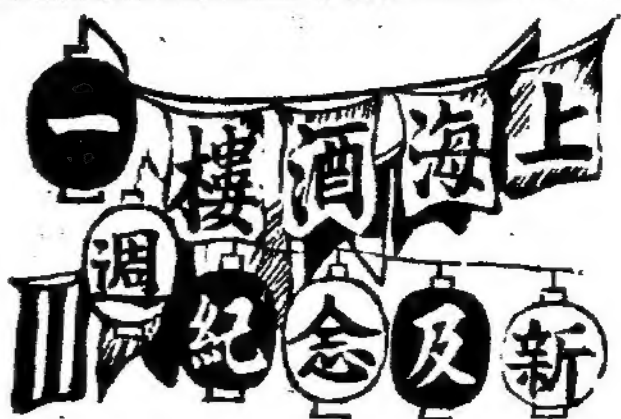 上海酒樓一
週紀念及新